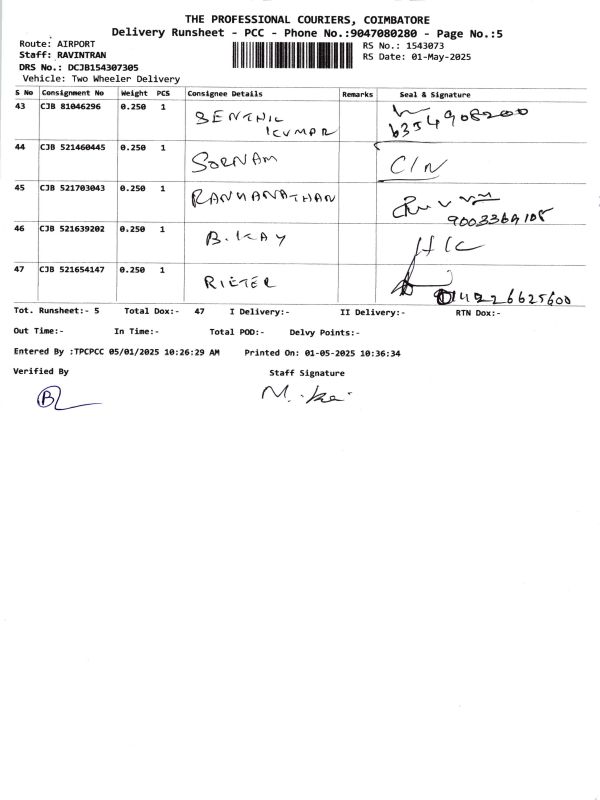 THE PROFESSIONAL COURIERS, COIMBATORE
Delivery Runsheet - PCC - Phone No.:9047080280 - Page No.:5
Route: AIRPORT
RS No.: 1543073
Staff: RAVINTRAN
RS Date: 01-May-2025
DRS No.: DCJB154307305
Vehicle: Two Wheeler Delivery
S No Consignment No Weight PCS Consignee Details Remarks Seal & Signature
43 CJB 81046296 0.250 1 SENTHIL
KUMAR
44 CJB 521460445 0.250 1 SORNAM C/N
45 CJB 521703043 0.250 1
9003369105
46 CJB 521639202 0.250 1 B.KAY H/C
47 CJB 521654147 0.250 1 RIETER
Tot. Runsheet:- 5 Total Dox:- 47 I Delivery:- II Delivery:- RTN Dox:-
Out Time:- In Time:- Total POD:- Delvy Points:-
Entered By :TPCPCC 05/01/2025 10:26:29 AM Printed On: 01-05-2025 10:36:34
Verified By Staff Signature